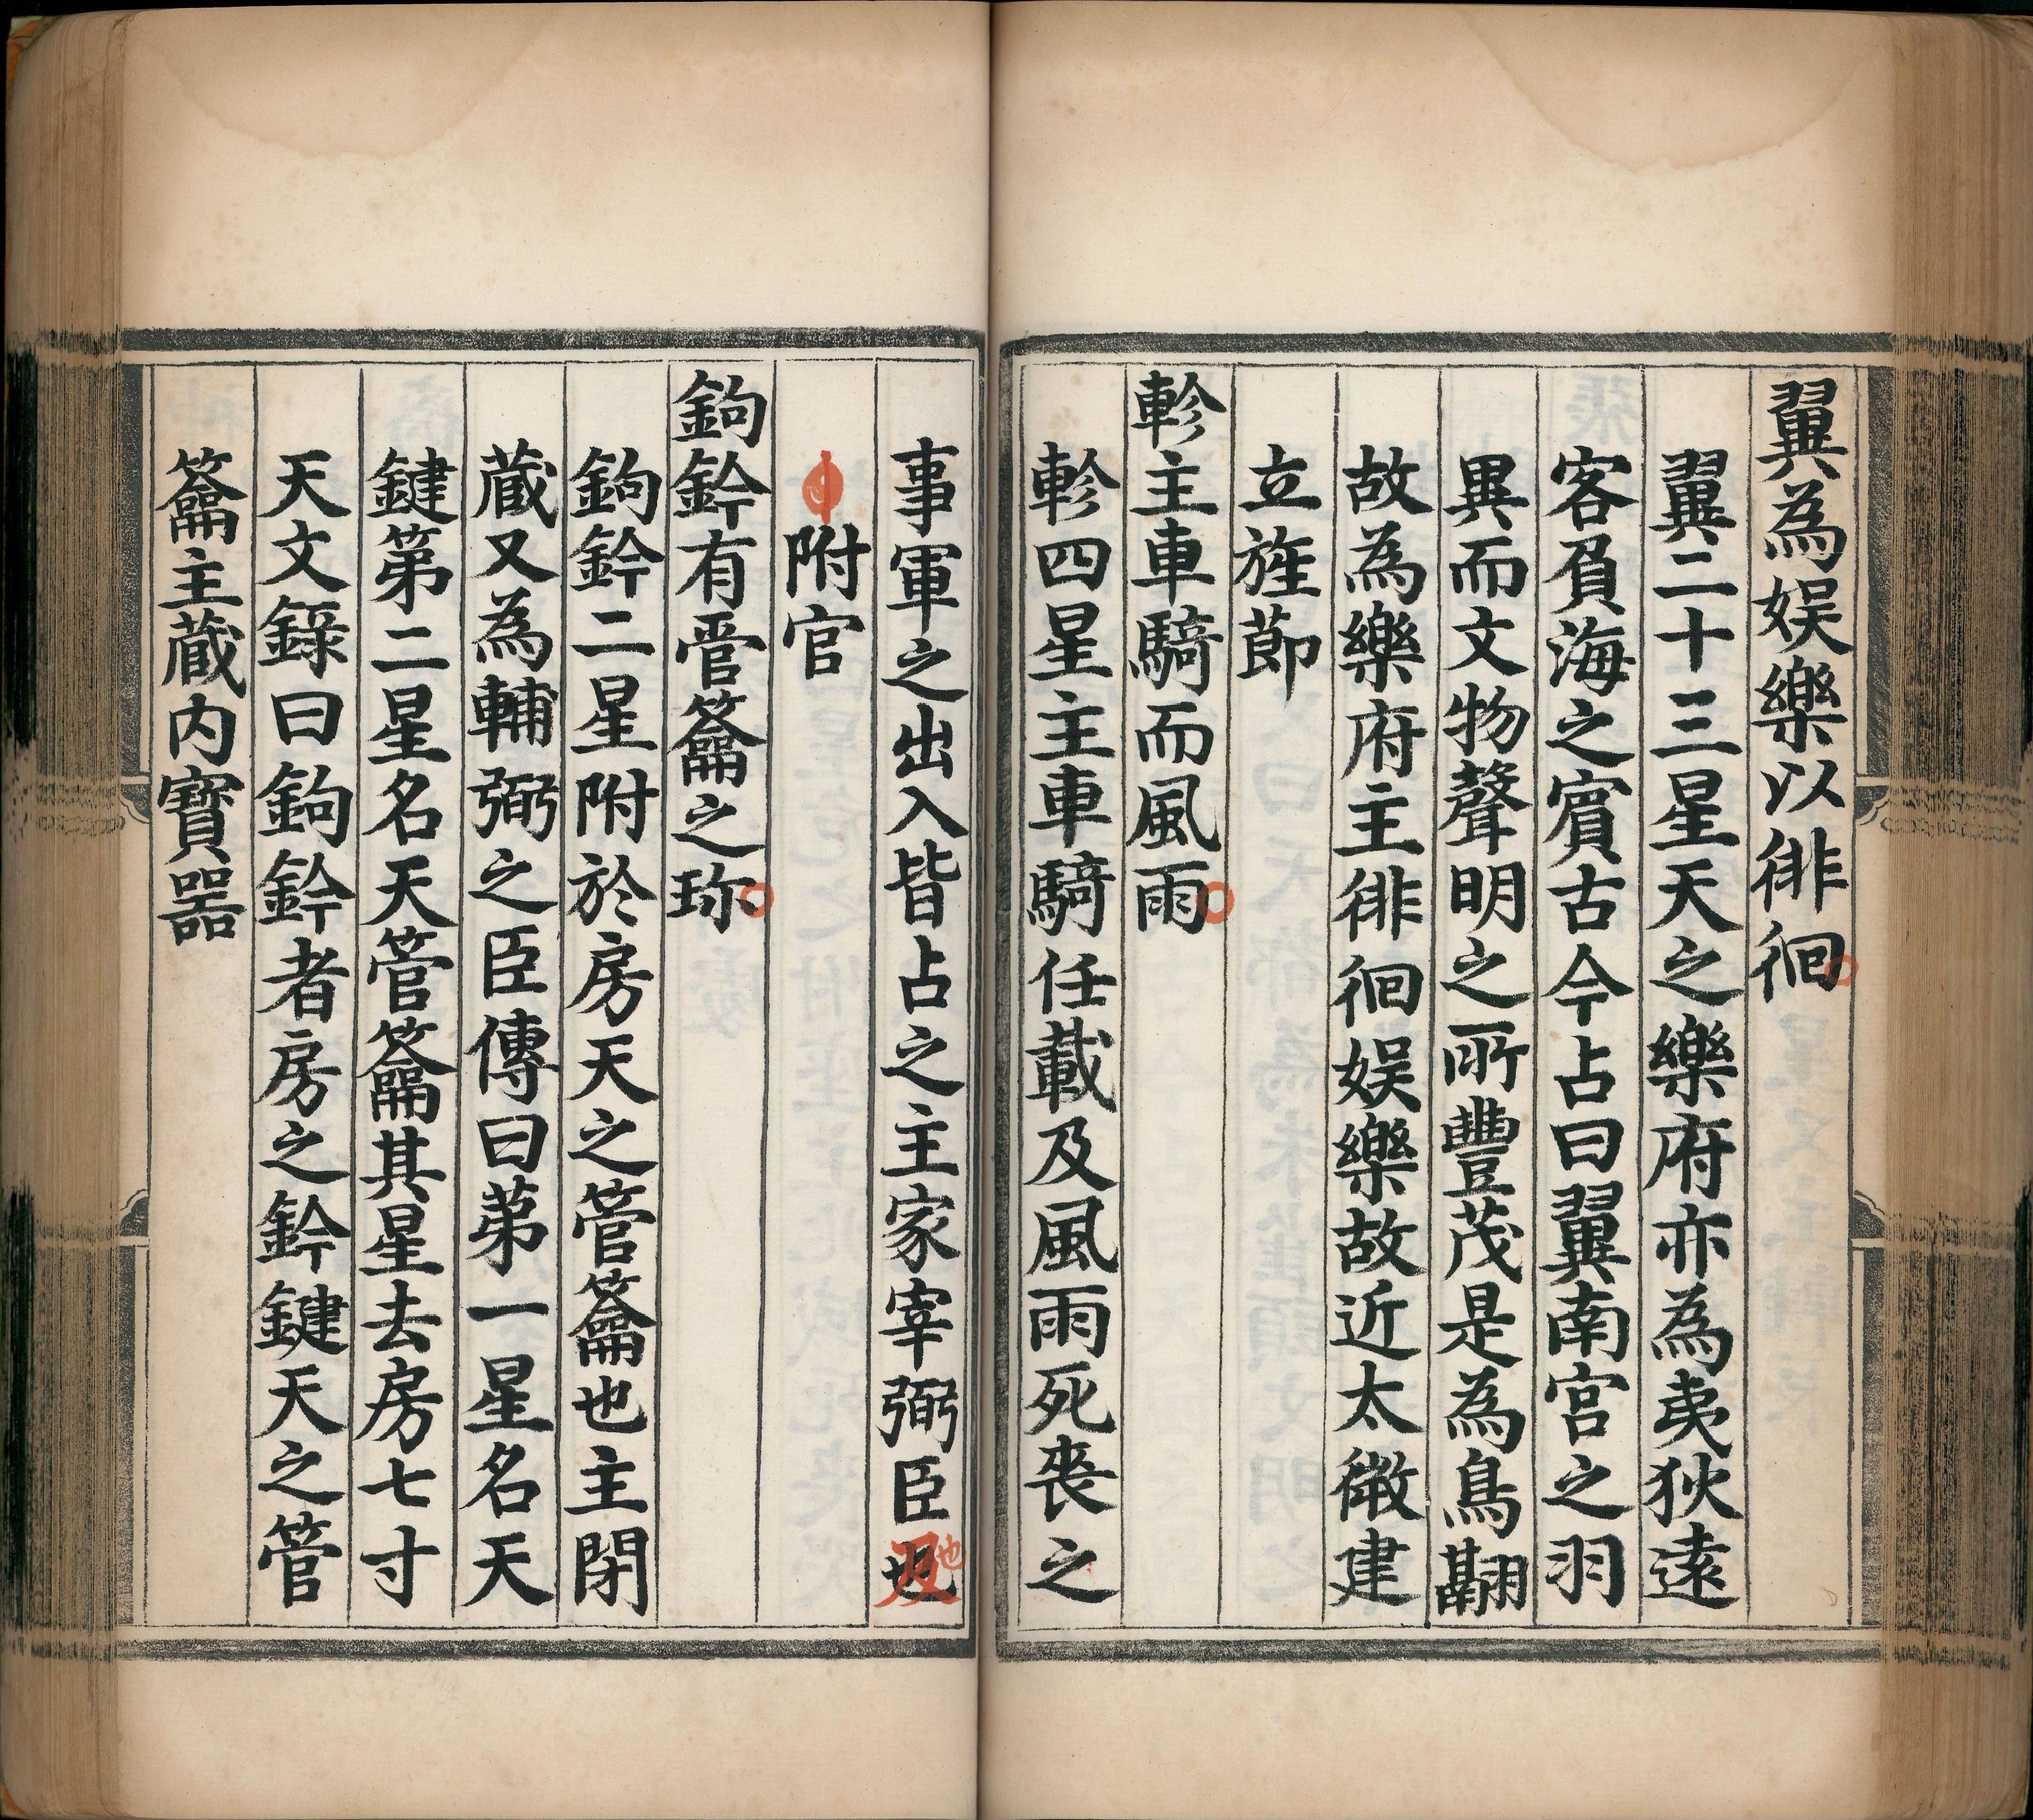 翼為娯樂以徘徊
翼二十三星天之樂府亦為夷狄遠
客負海之賓古今占曰翼南宮之羽
異而文物聲明之所豐茂是為鳥翻
故為樂府主徘徊娯樂故近太微建
立旌節
軫主車騎而風雨
軫四星主車騎任載及風雨死喪之
事軍之出入皆占之主家宰弼臣也
附官
鉤鈐有管籥之珎
鉤鈐二星附於房天之管籥也主閉
藏又為輔弼之臣傳曰第一星名天
鍵第二星名天管籥其星去房七寸
天文錄曰鉤鈐者房之鈐鍵天之管
籥主藏内寶器